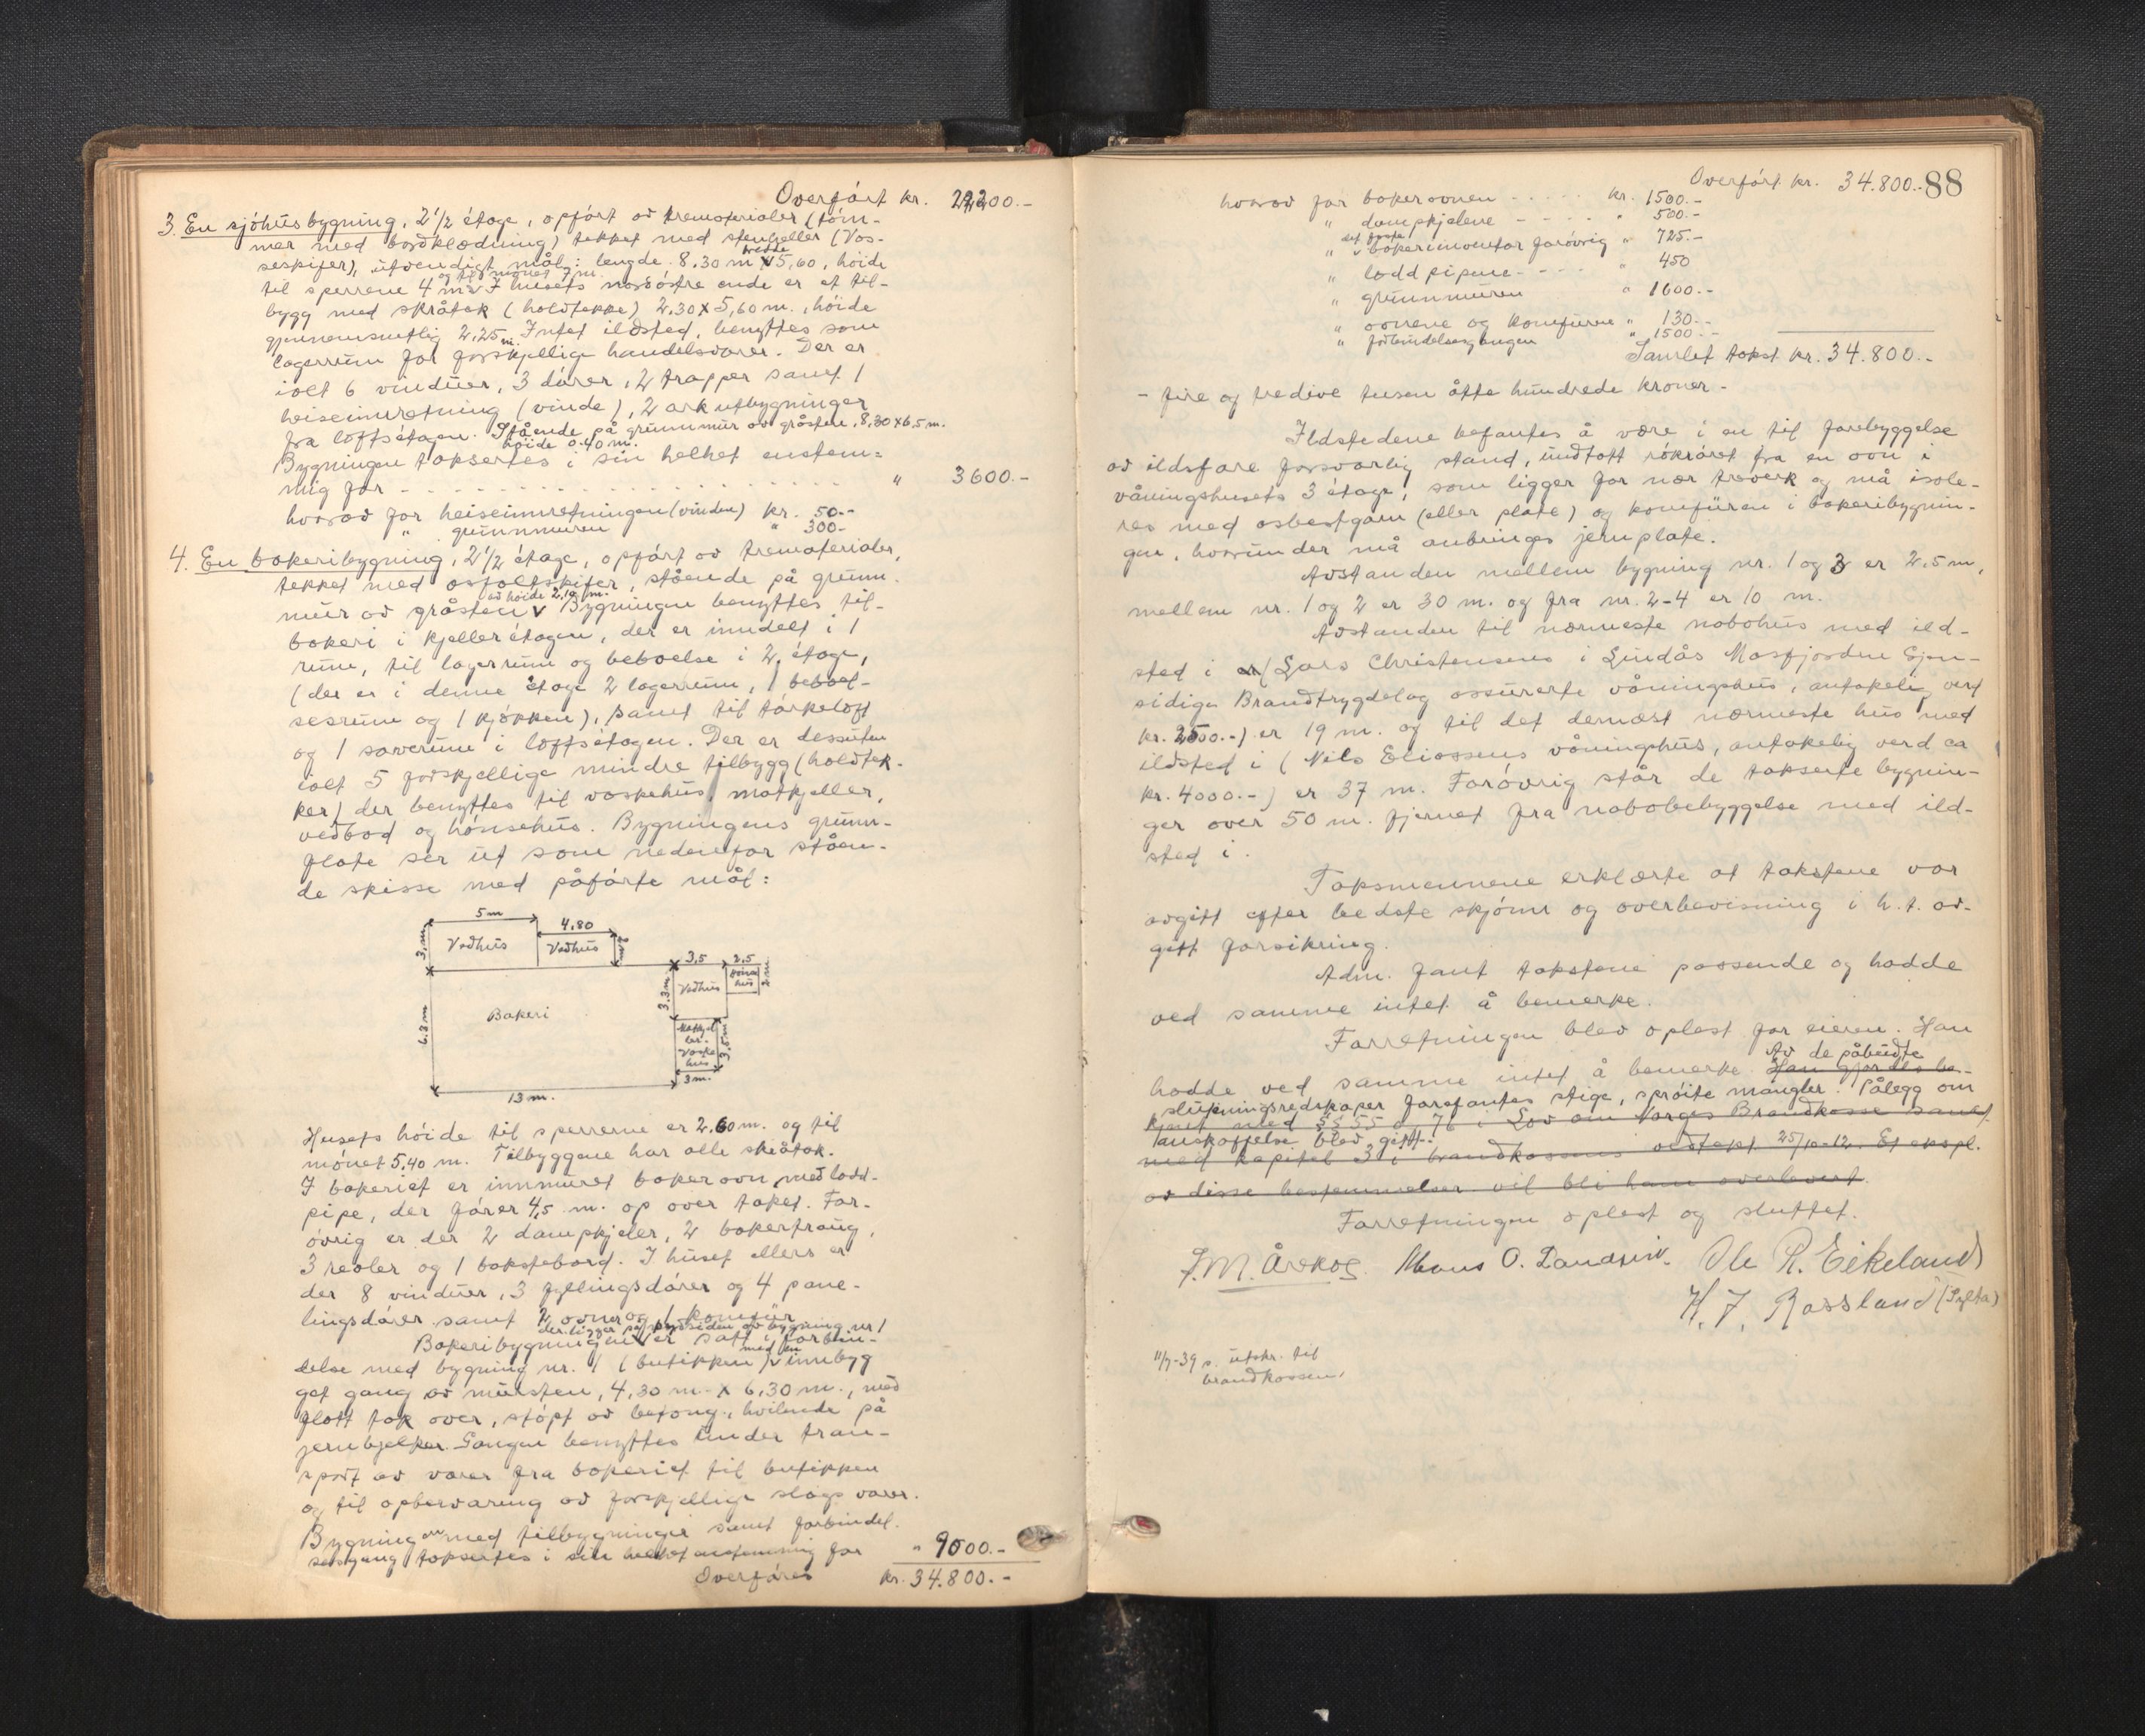 Overført kr. 22,200.-
3. En sjøhusbygning, 2 1/2 étage, opført av trematerialer (tøm-
mer med bordklædning) tekket med stenheller (Vos-
seskifer), utvendigt mål: lengde 8.30 m bredde x 5,60, høide
til sperrene 4 m og til mønet 7 m. I husets nordøstre ende er et til-
bygg med skråtak (holdtekke) 2.30 x 5,60 m., høide
gjennemsnitlig 2,25 m. Intet ildsted, benyttes som
lagerrum for forskjellige handelsvarer. Der er
ialt 6 vinduer, 3 dører, 2 trapper samt 1
heiseinnretning (vinde), 2 arkutbygninger
fra loftsétagen. Stående på grunnmur av gråsten, 8,30 x 6,5 m.
høide 0.40 m.
Bygningen taksertes i sin helhet enstem=
mig for - - - - " 3600.-
hvorav for heiseinnretningen (vinden) kr. 50.-
" grunnmuren " 300-
4. En bakeribygning, 2 1/2 étage, opført av trematerialer,
tekket med asfaltskifer, stående på grunn-
mur av gråsten av høide 2,10 m. Bygningen benyttes til
bakeri i kjellerétagen, der er inndelt i 1
rum, til lagerrum og beboelse i 2. étage,
(der er i denne étage 2 lagerrum, 1 beboel-
sesrum og 1 kjøkken), samt til tørkeloft
og 1 soverum i loftsétagen. Der er dessuten
ialt 5 forskjellige mindre tilbygg (holdtek-
ker) der benyttes til vaskehus, matkjeller,
vedbod og hønsehus. Bygningens grunn-
flate ser ut som nedenfor ståen-
de skisse med påførte mål:
5 m
4.80
3. m
Vedhus
Vedhus
3,5
2.5
Vedhus
høns
hus
2 m
3.3 m
Bakeri
6.3 m
Matkjel
ler-
Vaske
hus
3.5 m
3 m.
13 m.
Husets høide til sperrerne er 2.60 m. og til
mønet 5.40 m. Tilbyggene har alle skråtak.
I bakeriet er innmuret bakerovn med ladd-
pipe, der fører 4,5 m. op over taket. For-
øvrig er der 2 dampkjeler, 2 bakertraug,
3 reoler og 1 bakstebord. I huset ellers er
der 8 vinduer, 3 fyllingsdører og 4 pane-
lingsdører samt 2 ovner og 1 komfur
Bakeribygningen der ligger på nordsiden av bygning nr 1 er satt i forbin-
delse med bygning nr. 1 (butikken) med en innbyg
get gang av mursten, 4,30 m. x 6,30 m., med
flatt tak over, støpt av betong, hvilende på
jernbjelker. Gangen benyttes under tran-
sport av varer fra bakeriet til butikken
og til opbevaring av forskjellige slags varer.
Bygningen med tilbygninger samt forbindel-
sesgang taksertes i sin helhet enstemmig for " 9000.-
Overføres kr. 34.800.-
Overført kr. 34.800.- 88
hvorav for bakerovnen - - - - kr. 1500.-
" dampkjelene - - - - " 500.-
" det faste bakerinventar forøvrig " 725.-
" laddpipene - - - - " 450
" grunnmuren " 1600.-
" ovnene og komfurene " 130.-
" forbindelsesgangen " 1500.-
Samlet takst kr. 34.800.-
- fire og tredive tusen åtte hundrede kroner -
Ildstedene befantes å være i en til forebyggelse
av ildsfare forsvarlig stand, undtatt røkrøret fra en ovn i
våningshusets 3 étage, som ligger for nær treverk og må isole-
res med asbestgarn (eller plate) og komfuren i bakeribygnin-
gen, hvorunder må anbringes jernplate.
Avstanden mellem bygning nr. 1 og 3 er 2,5 m,
mellem nr. 1 og 2 er 30 m. og fra nr. 2-4 er 10 m.
Avstanden til nærmeste nabohus med ild-
sted i (Lars Christensens i Lindås Masfjorden Gjen-
sidige Brandtrygdelag assurerte våningshus, antakelig verd
kr. 2500.-) er 19 m. og til det dernæst nærmeste hus med
ildsted i (Nils Eliassens våningshus, antakelig verd ca
kr. 4000.-) er 37 m. Forøvrig står de takserte bygnin-
ger over 50 m. fjernet fra nabobebyggelse med ild-
sted i.
Taksmennene erklærte at takstene var
avgitt efter bedste skjønn og overbevisning i h. t. av-
gitt forsikring.
Adm. fant takstene passende og hadde
ved samme intet å bemerke.
Forretningen blev oplest for eieren. Han
hadde ved samme intet å bemerke. Han gjordes be-
Av de påbudte
slukningsredskaper forefantes stige, sprøite mangler. Pålegg om
kjent med §§ 55 og 76 i Lov om Norges Brandkasse samt
anskaffelse blev gitt.
med kapitel 3 i brandkassens vedtekt. 25/10-12. Et expl.
av disse bestemmelser vil bli ham overlevert.
Forretningen oplest og sluttet.
Ole R. Eikeland
H. J. Rossland
11/7-39 s. utskr. til
brandkassen,